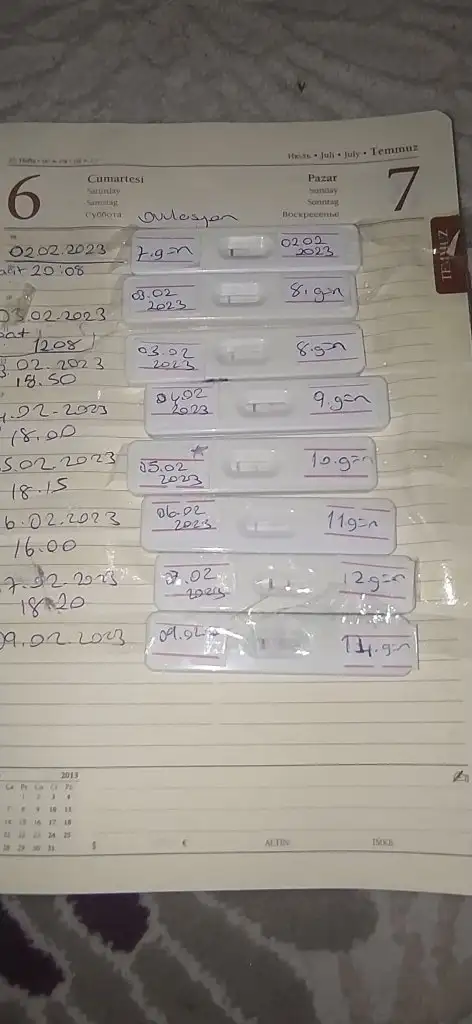 Июль • Juli • July • Temmuz
6
Cumartesi
Saturday
Samstag
Суббота
Pazar
Sunday
Sonntag
Воскресенье
7
TEMMUZ
Ovulasyon
02.02.2023
20:08
7.gün
02.02
2023
03.02.2023
1208
03.02
2023
8.gün
02.2023
18.50
03.02
2023
8.gün
.02.2023
18.00
04.02
2023
9.gün
5.02.2023
18.15
05.02
2023
10.gün
6.02.2023
16.00
06.02
2023
11gün
7.02.2023
18.20
07.02
2023
12gün
09.02.2023
09.02
14.gün
2013
$
€
ALTIN
IMKB